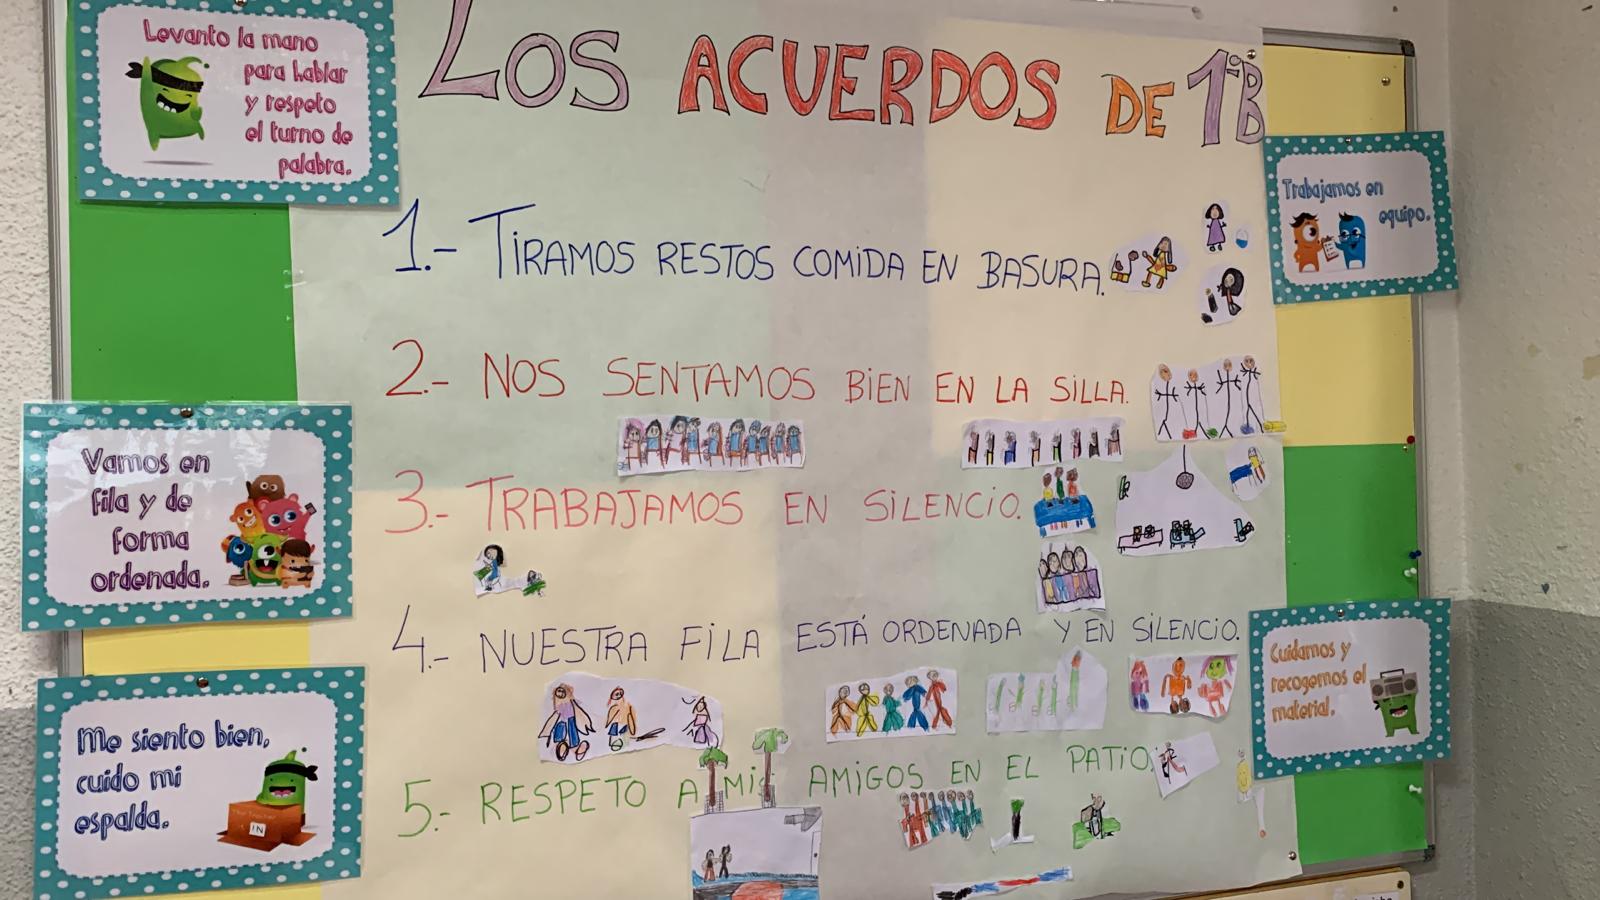 Los ACUERDOS DE 1ºB
1.- TIRAMOS RESTOS COMIDA EN BASURA.
2.- NOS SENTAMOS BIEN EN LA SILLA.
3.- TRABAJAMOS EN SILENCIO.
4.- NUESTRA FILA ESTÁ ORDENADA Y EN SILENCIO.
5.- RESPETO A MIS AMIGOS EN EL PATIO.
Levanto la mano
para hablar
y respeto
el turno de
palabra.
Vamos en
fila y de
forma
ordenada.
Me siento bien,
cuido mi
espalda.
IN
Trabajamos en
equipo.
Cuidamos y
recogemos el
material.